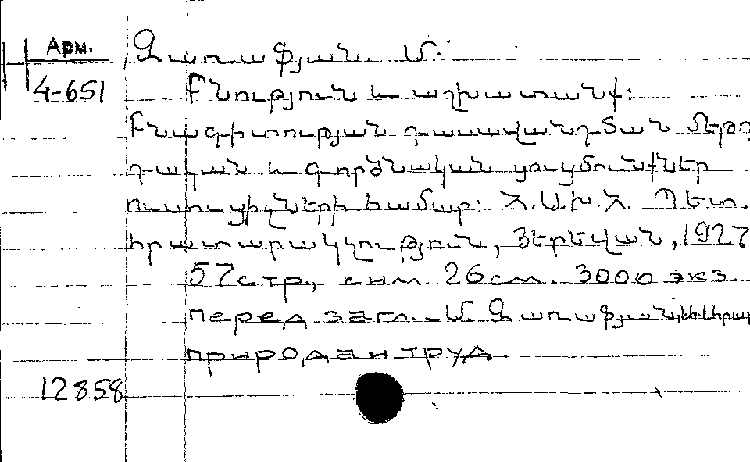 Арм.
4-651
Գառաֆյան Մ.
Բնություն և աշխատանք:
Բնագիտության դասավանդման մեթո
դական և գործնական ցուցմունքներ
ուսուցիչների համար: Հ.Ս.Խ.Հ. Պետ.
հրատարակչություն, Յերեվան, 1927
57 стр., снм 26 см. 3000 экз
перед загл. Մ Գառաֆյան
природа и труд
12858